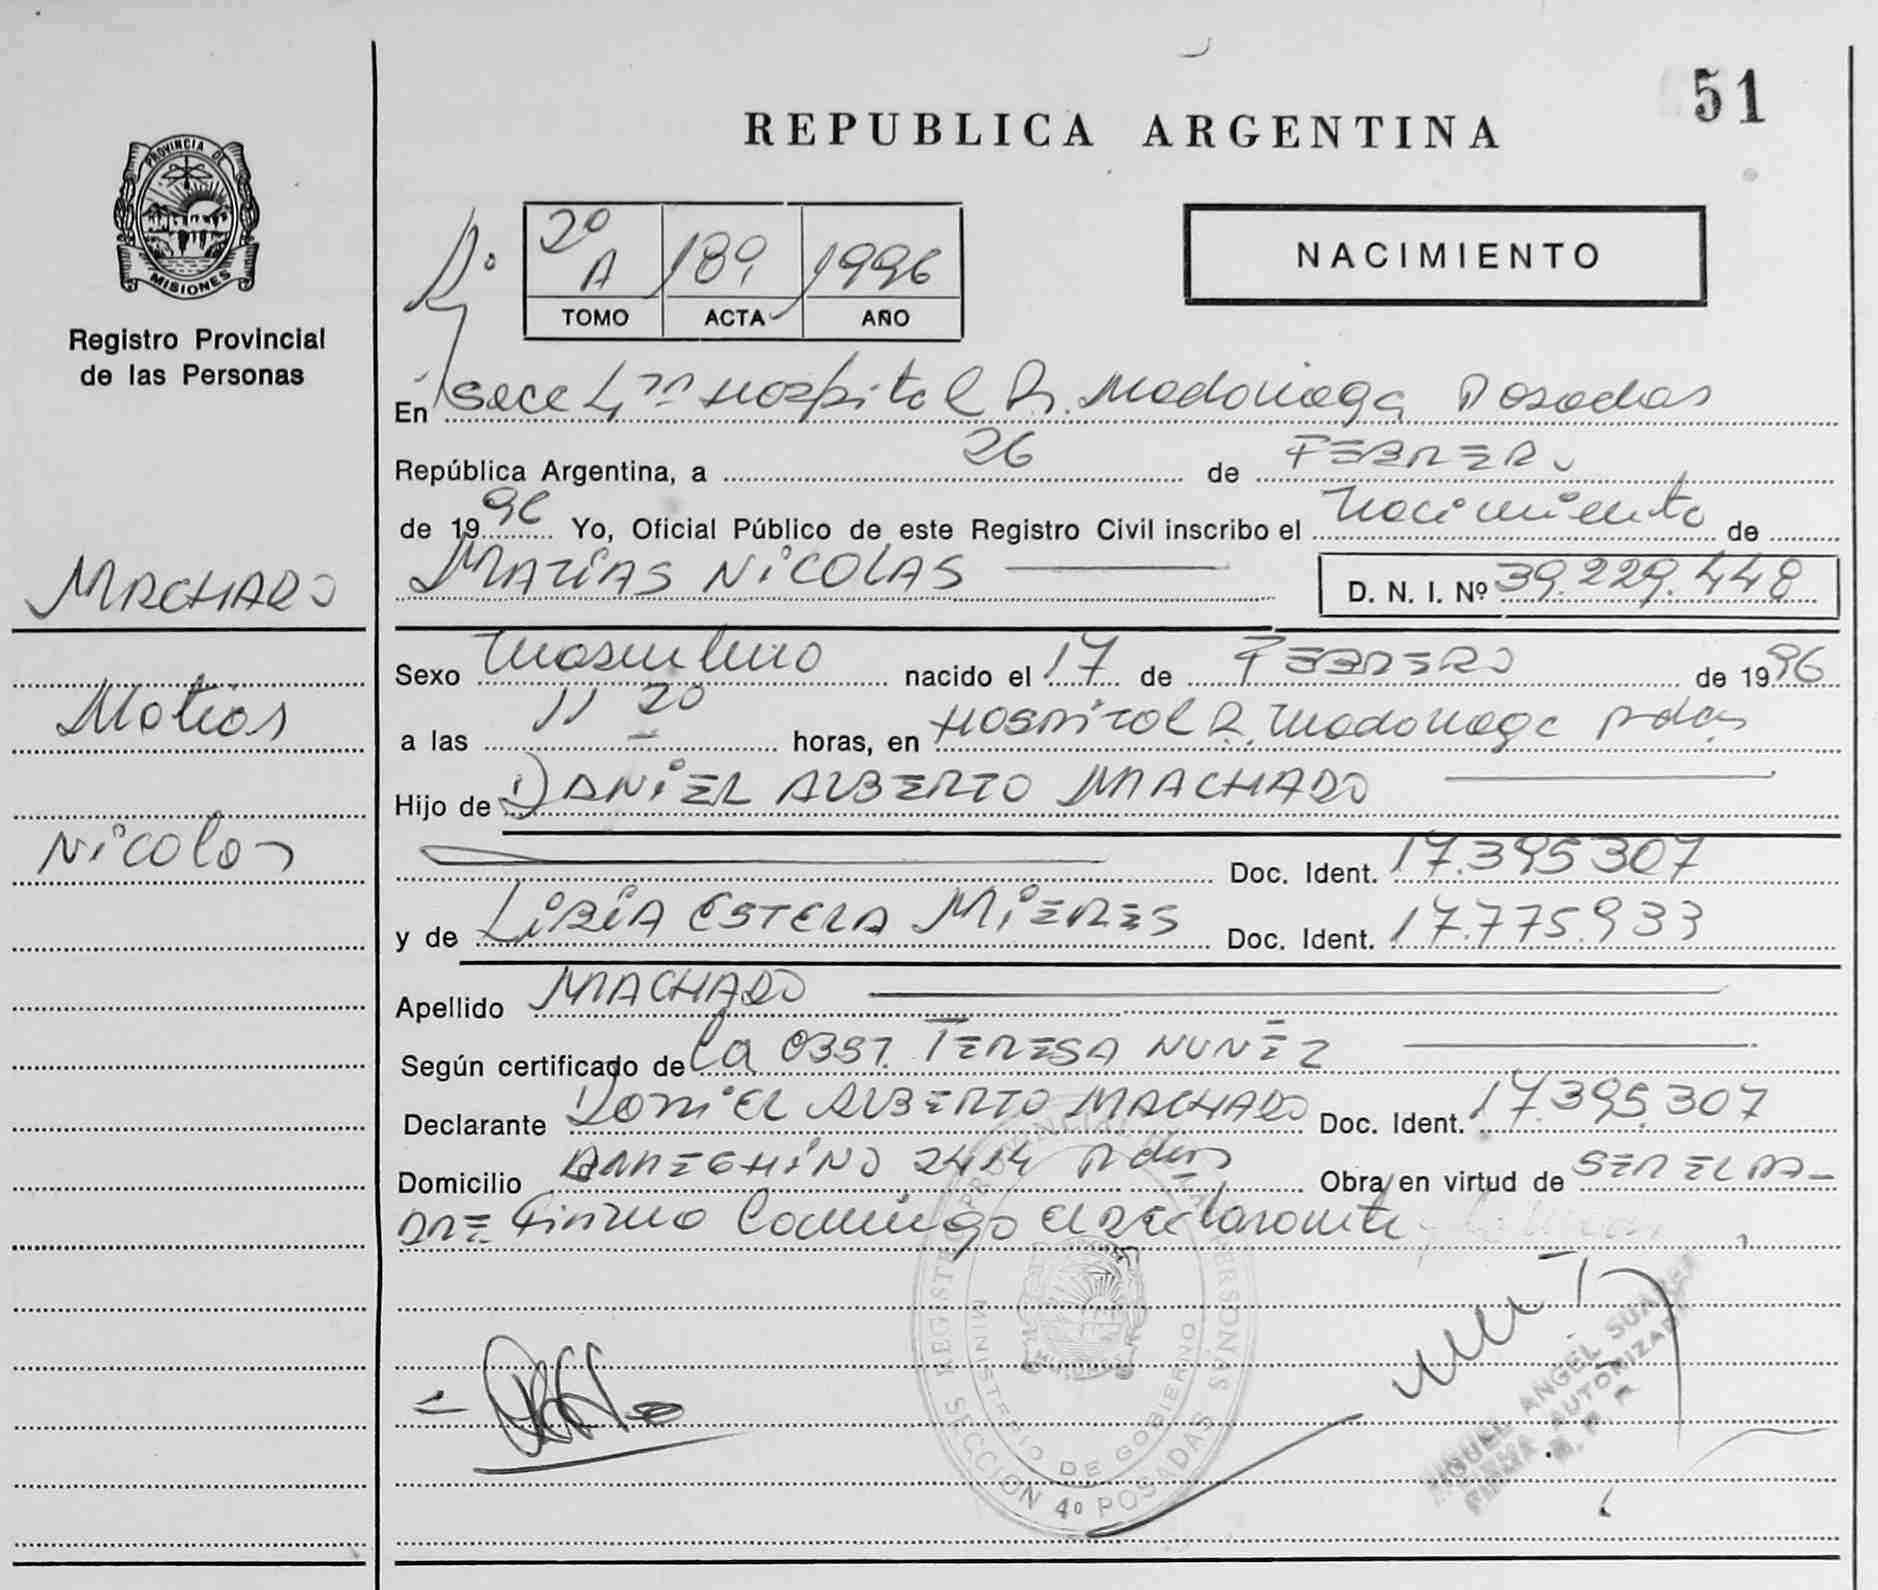 51
REPUBLICA ARGENTINA
PROVINCIA DE
MISIONES
Registro Provincial
de las Personas
2º A 189 1996
TOMO ACTA AÑO
NACIMIENTO
En Secc 4ta Hospital R. Madariaga Posadas
República Argentina, a 26 de FEBRERO
de 1996 Yo, Oficial Público de este Registro Civil inscribo el Nacimiento de
MACHADO
MATÍAS NICOLAS
D. N. I. Nº 39.229.448
Sexo Masculino nacido el 17 de FEBRERO de 1996
Matias
a las 11 20 horas, en HOSPITAL R. Madariaga Pdas
Hijo de DANIEL ALBERTO MACHADO
Nicolas
Doc. Ident. 17.395307
y de LIBIA ESTELA MIERES Doc. Ident. 17.775.933
Apellido MACHADO
Según certificado de la OBST. TERESA NUÑEZ
Declarante DANIEL ALBERTO MACHADO Doc. Ident. 17.395.307
Domicilio AMEGHINO 2414 Pdas Obra en virtud de SER EL PA-
DRE Firma Conmigo el declarante
REGISTRO PROVINCIAL DE LAS PERSONAS
MINISTERIO DE GOBIERNO
SECCION 4º POSADAS
MIGUEL ANGEL SUAREZ
FIRMA AUTORIZADA